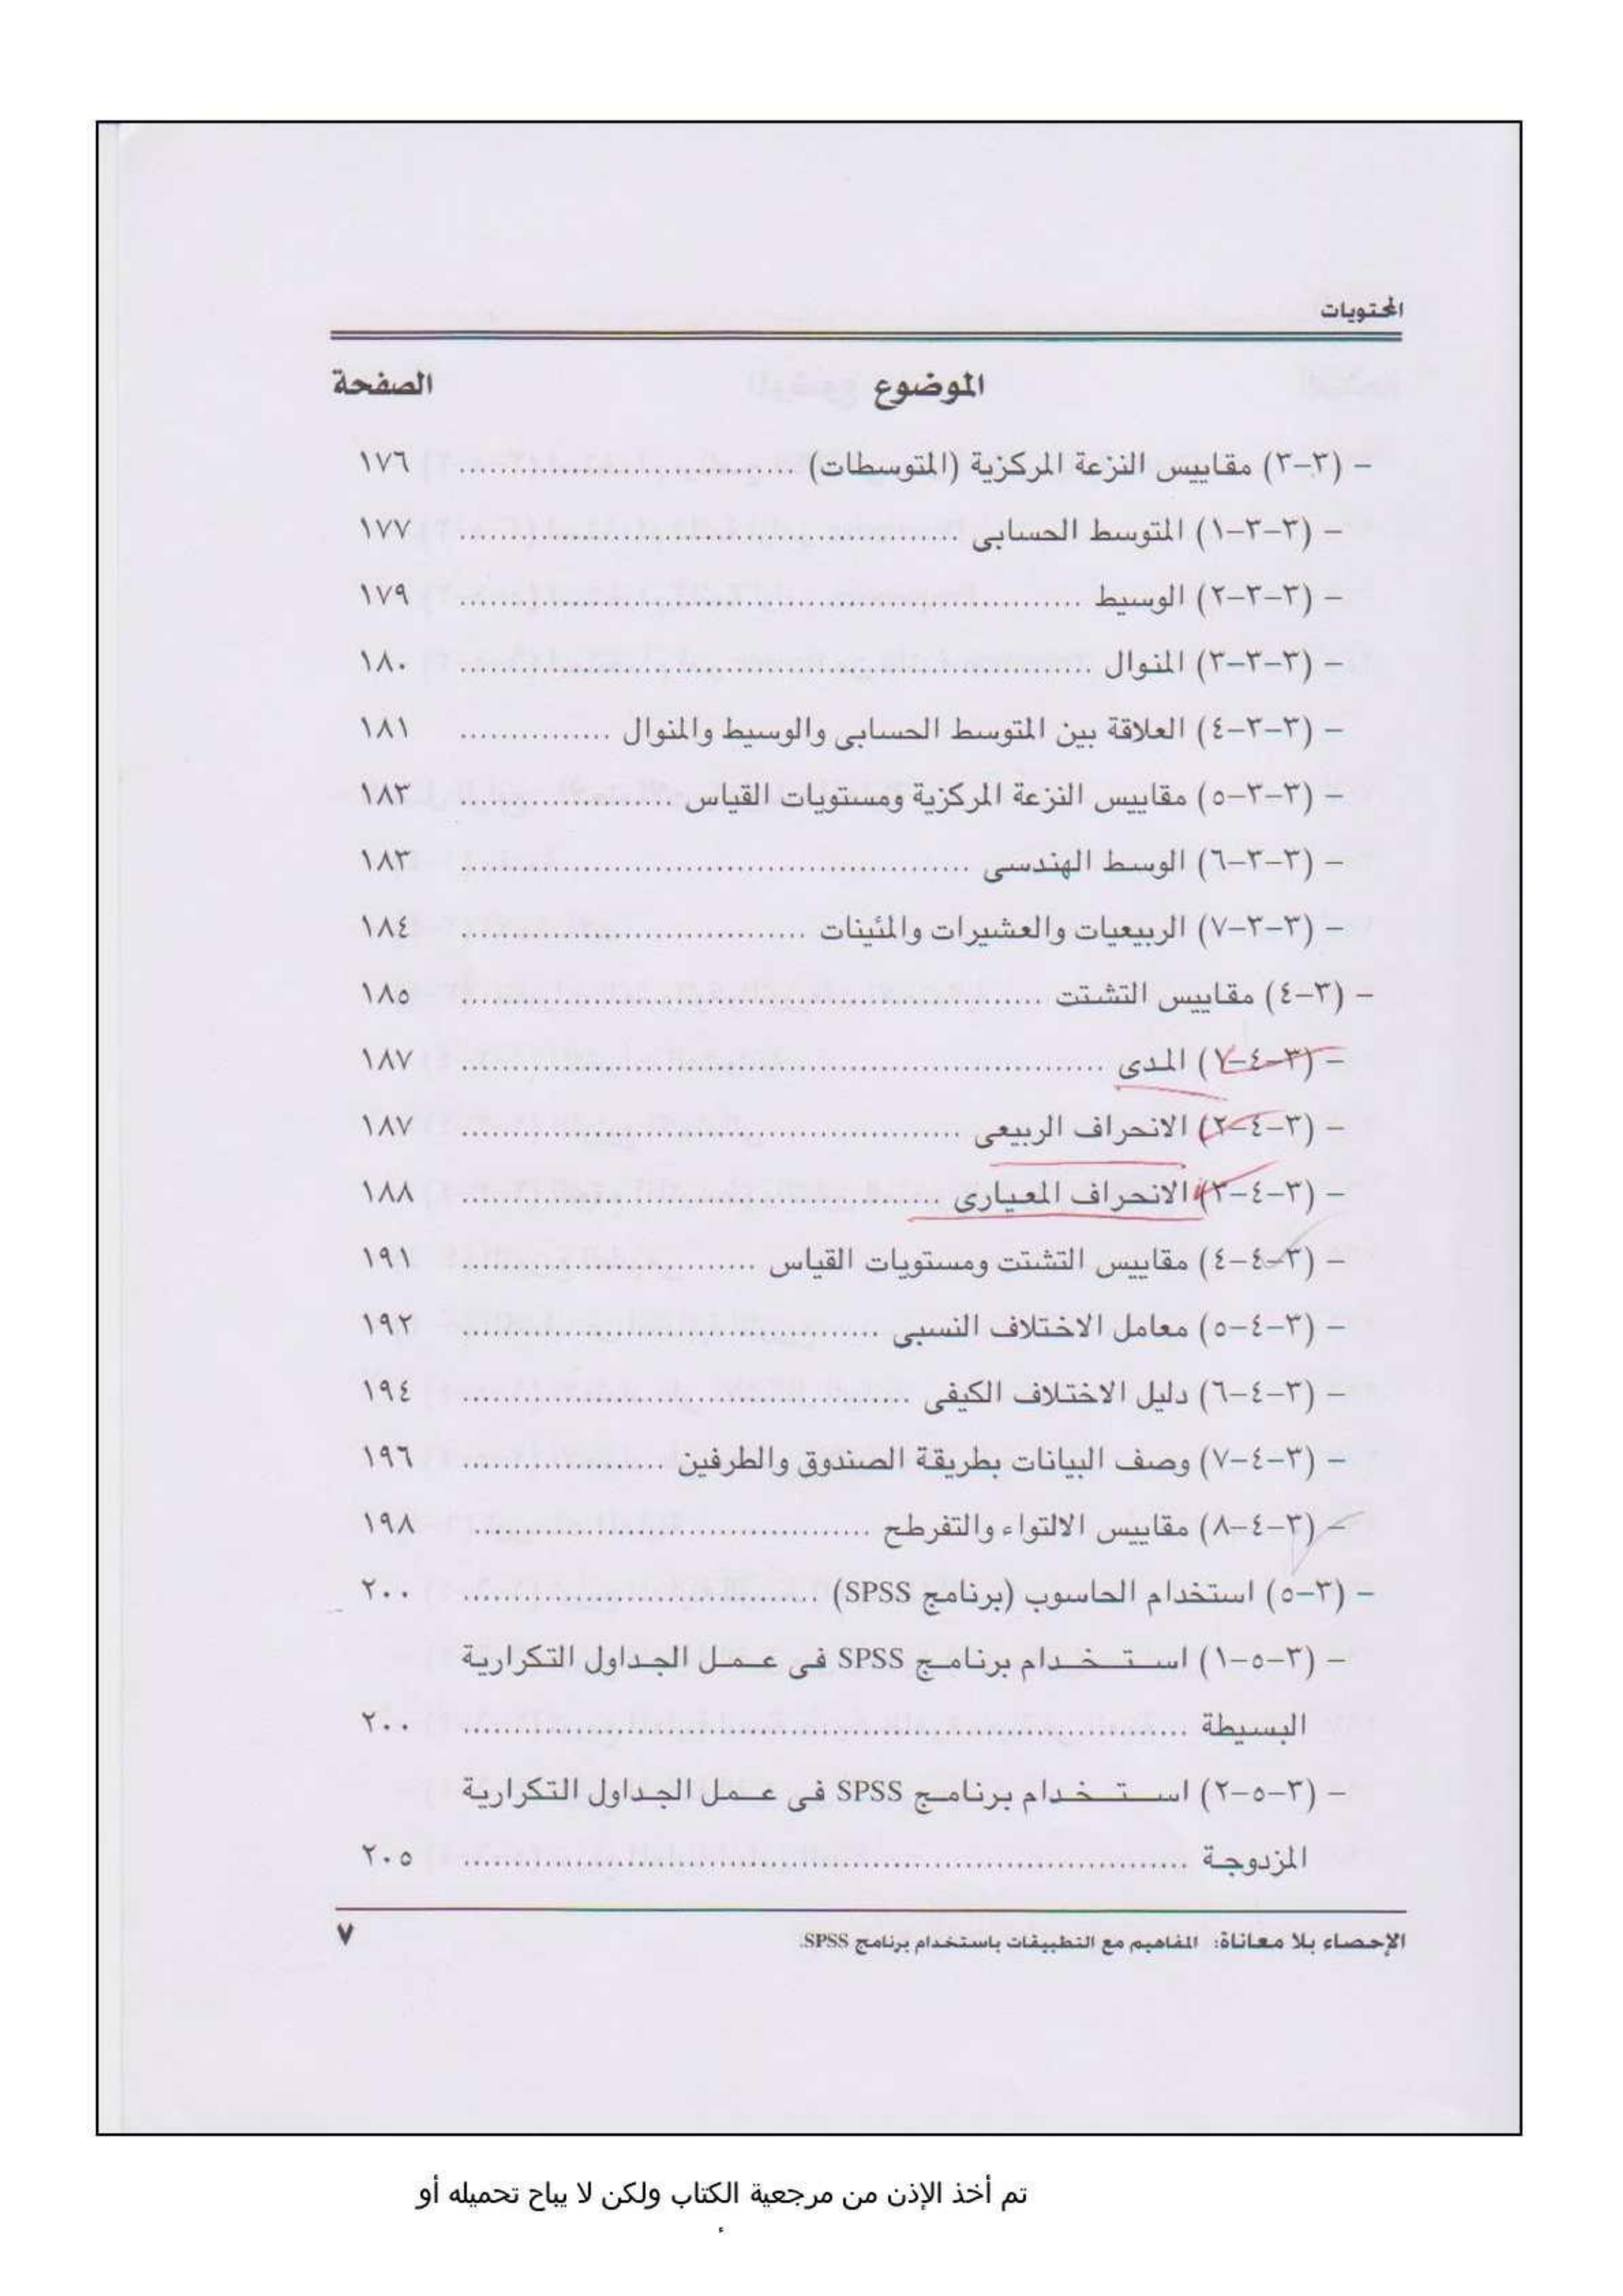 المحتويات
الموضوع الصفحة
– (٣-٣) مقاييس النزعة المركزية (المتوسطات) ................................. ١٧٦
– (٣-٣-١) المتوسط الحسابى ................................................. ١٧٧
– (٣-٣-٢) الوسيط ............................................................. ١٧٩
– (٣-٣-٣) المنوال .............................................................. ١٨٠
– (٣-٣-٤) العلاقة بين المتوسط الحسابى والوسيط والمنوال ............... ١٨١
– (٣-٣-٥) مقاييس النزعة المركزية ومستويات القياس ..................... ١٨٣
– (٣-٣-٦) الوسط الهندسى .................................................. ١٨٣
– (٣-٣-٧) الربيعيات والعشيرات والمئينات .................................. ١٨٤
– (٣-٤) مقاييس التشتت ......................................................... ١٨٥
– (٣-٤-١) المدى ............................................................... ١٨٧
– (٣-٤-٢) الانحراف الربيعى ................................................. ١٨٧
– (٣-٤-٣) الانحراف المعيارى ............................................... ١٨٨
– (٣-٤-٤) مقاييس التشتت ومستويات القياس ............................. ١٩١
– (٣-٤-٥) معامل الاختلاف النسبى ......................................... ١٩٢
– (٣-٤-٦) دليل الاختلاف الكيفى ............................................ ١٩٤
– (٣-٤-٧) وصف البيانات بطريقة الصندوق والطرفين .................... ١٩٦
– (٣-٤-٨) مقاييس الالتواء والتفرطح ....................................... ١٩٨
– (٣-٥) استخدام الحاسوب (برنامج SPSS) ................................... ٢٠٠
– (٣-٥-١) استخدام برنامج SPSS فى عمل الجداول التكرارية
البسيطة ....................................................................... ٢٠٠
– (٣-٥-٢) استخدام برنامج SPSS فى عمل الجداول التكرارية
المزدوجة ....................................................................... ٢٠٥
الإحصاء بلا معاناة: المفاهيم مع التطبيقات باستخدام برنامج SPSS. ٧
تم أخذ الإذن من مرجعية الكتاب ولكن لا يباح تحميله أو